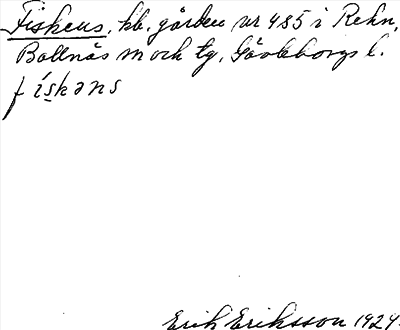 Fiskens, hb. gården nr 485 i Rehn,
Bollnäs sn och tg, Gävleborgs l.
fískəns
Erik Eriksson 1924.